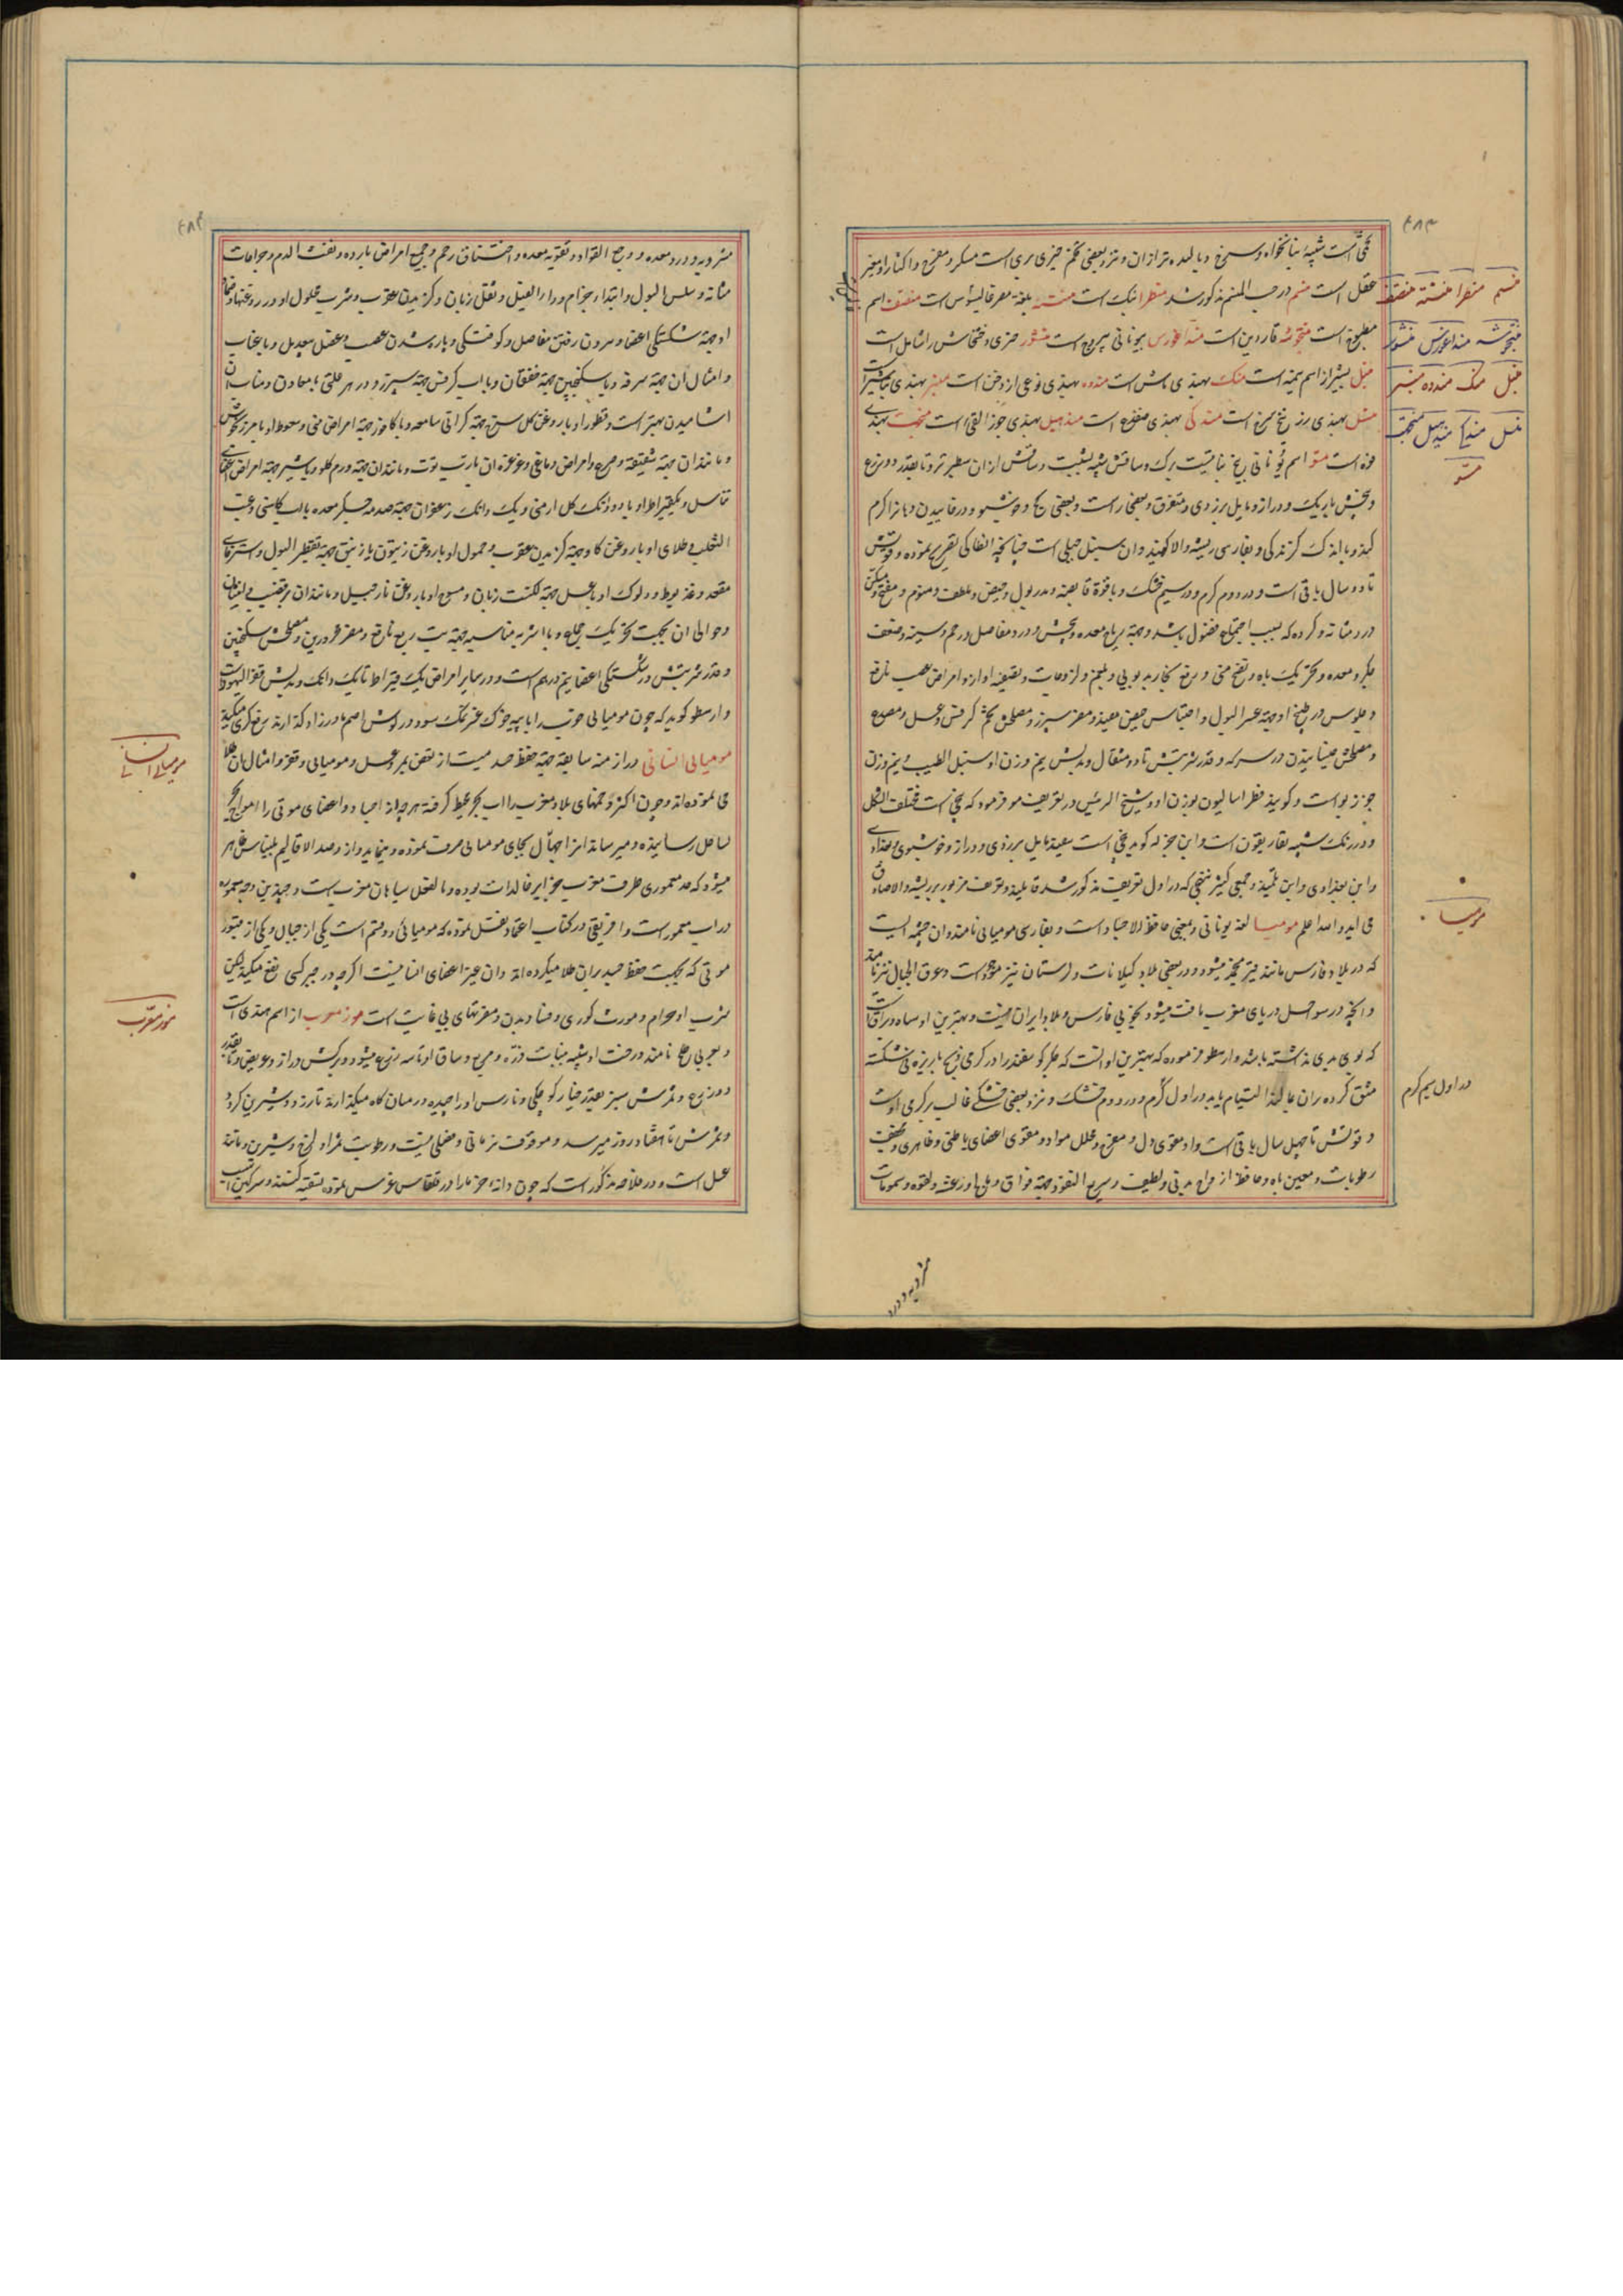 تخمی است شبیه بنانخواه و سرخ و بالیده‌تر از ان و نزد بعضی تخم خیری بری است مسکر و مفرح و اکثار او مغیر
عقل است منسم در حب المنسم مذکور شد منظرا نبک است منسته بلغة مصر است منصف اسم
مطبوخ است منجوشه ناردین است منداغورس بیونانی یبروج است منثور خیری و خشخاش را شامل است
منبل بشیرازی اسم یمنه است منک بهندی ماش است مندوه بهندی نوعی از دخن است منبر بهندی
منسل بهندی زرنیخ سرخ است مندکی بهندی است مندهیل بهندی جوز القی است منجیت بهندی
فوه است منو اسم یونانی بیخ نباتیست برک و ساقش شبیه بشبت و ساقش از ان سطبرتر و تا بقدر دو ذرع
و بیخش باریک و دراز و مایل بزردی و متفرق و بعضی راست و بعضی کج و خوشبو و در خاییدن زبان را کرم
کند و با اندک کزندکی و بفارسی ریشه والا کویند و ان سنبل جبلی است چنانچه انطاکی تصریح نموده و قوتش
تا دو سال باقی است و در دوم کرم و در سیم خشک و با قوة قابضه و مدر بول و حیض و ملطف و منوم و مفتح و مسکن
درد مثانه و کرده که بسبب اجتماع فضول باشد و جهة ریاح معده و پیچش و درد مفاصل و رحم و سینه و ضعف
جکر و معده و تحریک باه و نضج منی و رفع بخار بد بویی و بلغم و لزوجات و تصفیه اواز و امراض عصب نافع
و جلوس در طبیخ او جهة عسر البول و احتباس حیض مفید و مضر سپرز و مصلحش تخم کرفس و عسل و مصدع
و مصلحش خیسانیدن در سرکه و قدر شربتش تا دو مثقال و بدلش نیم وزن او سنبل الطیب و نیم وزن
جوز بواست و کویند فطراسالیون بوزن او و شیخ الرئیس در تعریف مو فرموده که بیخی است مختلف الشکل
و در رنک شبیه بغاریقون است و ابن جزله کوید بیخی است سفید مایل بزردی و دراز و خوشبوی
و ابن بغدادی و ابن تلمیذ و جمعی کثیر بنحوی که در اول تعریف مذکور شد قایلند و تعریف مزبور بر ریشه والا صادق
می اید والله اعلم مومیا لغة یونانی و بمعنی حافظ الاجساد است و بفارسی مومیانی نامند و ان چشمه ایست
که در بلاد فارس مانند قیر منجمد میشود و در بعضی بلاد کیلانات و لرستان نیز موجود است و عرق الجبال نیز نامند
و انچه در سواحل دریای مغرب یافت میشود بخوبی فارس و بلاد ایران نیست و بهترین او سیاه و براق است
که بوی بدی نداشته باشد و ارسطو فرموده که بهترین او انست که جکر کوسفند را در کرمی ذبح پاره پاره
شق کرده بران بمالند التیام یابد در اول کرم و در دوم خشک و نزد بعضی خشکی غالب بر کرمی اوست
و قوتش تا چهل سال باقی است و او مقوی دل و مفرح و محلل مواد و مقوی اعضای باطنی و ظاهری و مجفف
رطوبات و معین باه و حافظ ارواح بدنی و لطیف و سریع النفوذ و جهة فواق و فالج و رعشه و لقوه و سمومات
۶۸۳
منسم منظرا منسته منصف
منجوشه منداغورس منثور
منبل منک مندوه منبر
منسل مندکی مندهیل منجیت
منو
مومیا
در اول سیم کرم
مشروبه و درد
مشروبه و درد معده و وجع الفواد و تقویه معده و اختناق رحم و جمیع امراض بارده و نفث الدم و جراحات
مثانه و سلس البول و ابتداء جذام و داء الفیل و ثقل زبان و کزیدن عقرب و شرب محلول او در روغنها
او جهة شکستکی اعضا و بیرون رفتن مفاصل و کوفتکی و پاره شدن عصب و عضل بیعدیل و با عناب
و امثال ان جهة سرفه و با سکنجبین جهة خفقان و با اب کرفس جهة سپرز و در هر علتی با معاون و مناسب ان
اشامیدن بهتر است و قطور او با روغن کل سرخ جهة کرانی سامعه و با کافور جهة امراض منی و سعوط او با مرزنجوش
و مانند ان جهة شقیقه و صرع و امراض دماغی و غرغره ان با رب توت و مانند ان جهة ورم کلو و با شیر جهة امراض اعضای
تناسل و یکقیراط او با دو دانک کل ارمنی و یک دانک زعفران جهة صدمه جکر معده با اب کاسنی و عنب
الثعلب و طلای او با روغن کاو جهة کزیدن عقرب و حمول او با روغن زیتون یا زنبق جهة تقطیر البول و استرخای
مقعد و دلوک او با عسل جهة لکنت زبان و مسح او با روغن نارجیل و مانند ان بر قضیب
و حوالی ان بجهت تحریک جماع و با اشربه مناسبه جهة تب ربع نافع و مضر محرورین و مصلحش سکنجبین
و قدر شربتش در شکستکی اعضا نیم درهم است و در سایر امراض یک قیراط تا یک دانک و بدلش قفر الیهود است
و ارسطو کوید که چون مومیانی خوب را با پیه خوک سود و در کوش اصم مادرزاد کذارند رفع کری میکند
مومیانی انسانی در ازمنه سابقه جهة حفظ جسد میت از تعفن بمر و عسل و مومیانی و قفر و امثال ان طلا
می نموده اند و چون اکثر زمینهای بلاد مغرب را اب بحر محیط کرفته هرچه از اجساد و اعضای موتی را امواج بحر
بساحل رسانیده و میرساند انرا جهال بجای مومیانی صرف نموده و مینمایند و از رصد الاقالیم بلیناس ظاهر
میشود که حد معموری طرف مغرب جزایر خالدات بوده و بالفعل سیاهان مغرب است و چندین درجه معموره
در اب مغمور است و افریقی در کتاب اعتماد نقل نموده که مومیائی دو قسم است یکی از جبال و یکی از قبور
موتی که بجهت حفظ جسد بران طلا میکرده اند و ان غیر اعضای انسانیست اکرچه در جبر کسر نفع میکند لیکن
شرب او حرام و مورث کوری و فساد بدن و ضررهای بی غایت است موز معرب از اسم هندی است
و بعربی طلح نامند درخت او شبیه بنبات ذره و مربع و ساق او تا سه ذرع میشود و برکش دراز و عریض و تا بقدر
دو ذرع و ثمرش سبز بقدر خیار کوچکی و نارس او را چیده در میان کاه میکذارند تا زرد و شیرین کردد
و ثمرش تا هفتاد روز میرسد و موقوف بزمانی و فصلی نیست و رطوبت ثمر او لزج و شیرین و مانند
عسل است و در فلاحه مذکور است که چون دانه خرما را در قلقاس غرس نموده سقیه کنند و سرکین
مومیانی انسانی
موز معرب